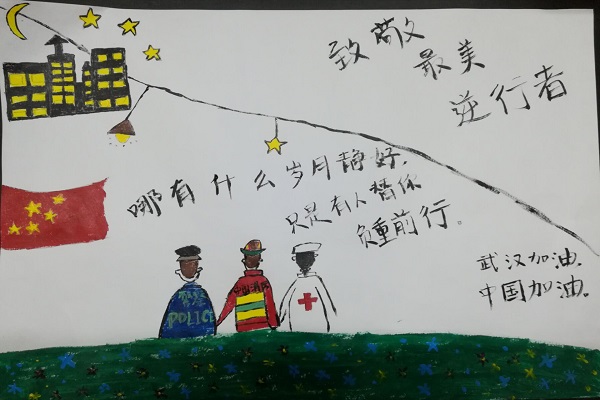 致敬
最美
逆行者
哪有什么岁月静好,
只是有人替你
负重前行。
武汉加油.
中国加油.
警察
POLICE
中国消防